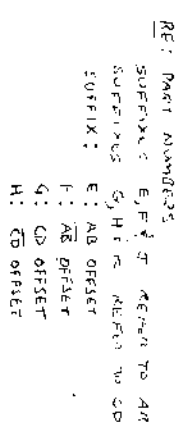 RE: PART NUMBERS
SUFFIXES E, F & J REFER TO AB
SUFFIXES G, H & K REFER TO CD
SUFFIX:
E: AB OFFSET
F: A̅B̅ OFFSET
G: CD OFFSET
H: C̅D̅ OFFSET